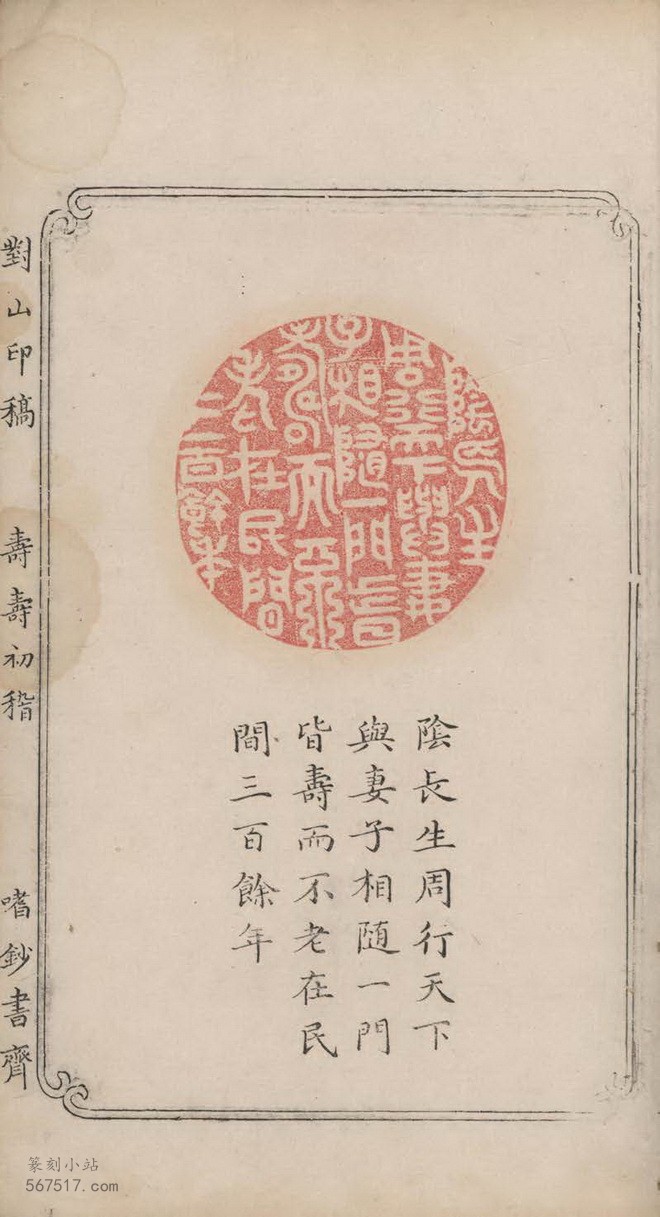 陰長生
周行天下與妻
子相隨一門皆
壽而不
老在民間
三百餘年
陰長生周行天下
與妻子相隨一門
皆壽而不老在民
間三百餘年
對山印稿 壽壽初稽 嗜鈔書齊
篆刻小站
567517.com